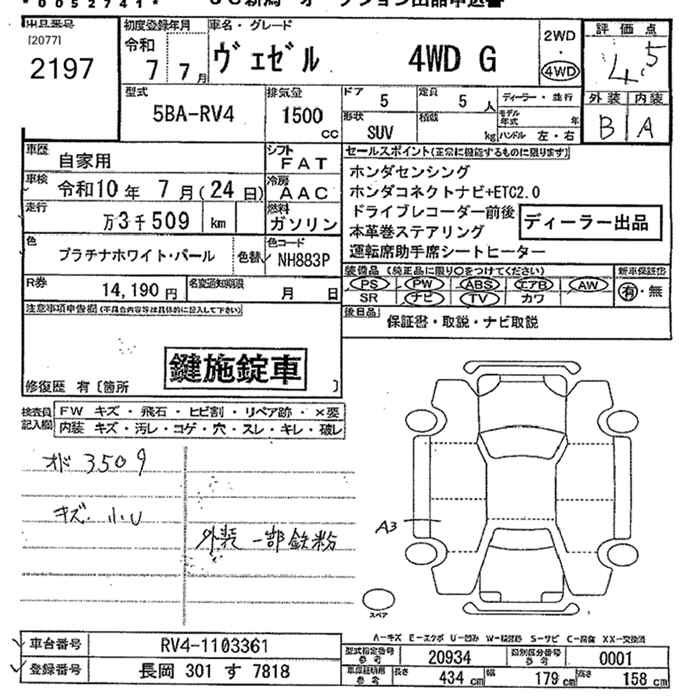 *0052741*
[2077]
2197
初度登録年月
令和
7 7月
車名・グレード
ヴェゼル 4WD G
2WD
・
4WD
評価点
4.5
外装 内装
B A
型式
5BA-RV4
排気量
1500
cc
ドア
5
定員
5人
形状
SUV
積載
kg
ディーラー・並行
モデル年式 年
ハンドル 左・右
車歴
自家用
シフト
FAT
車検
令和10年 7月(24日)
冷房
AAC
走行
万3千509 km
燃料
ガソリン
色
プラチナホワイト・パール
色替
色コード
NH883P
R券
14,190円
名変通知期限
月 日
セールスポイント(正常に機能するものに限ります)
ホンダセンシング
ホンダコネクトナビ+ETC2.0
ドライブレコーダー前後
本革巻ステアリング
運転席助手席シートヒーター
ディーラー出品
装備品 (純正品に限り○をつけてください)
PS PW ABS エアB AW
SR ナビ TV カワ
新車保証書
有・無
後日品
保証書・取説・ナビ取説
注意事項申告欄(不具合内容等は具体的に記入して下さい)
鍵施錠車
修復歴 有〔箇所 〕
検査員記入欄
FW キズ・飛石・ヒビ割・リペア跡・×要
内装 キズ・汚レ・コゲ・穴・スレ・キレ・破レ
オド 3509
キズ・小U
外装 一部鉄粉
A3
スペア
A-キズ E-エクボ U-凹み W-補修跡 S-サビ C-腐食 XX-交換済
車台番号
RV4-1103361
登録番号
長岡 301 す 7818
型式指定番号
参考
20934
類別区分番号
参考
0001
車庫証明用
参考
長さ
434 cm
幅
179 cm
高さ
158 cm